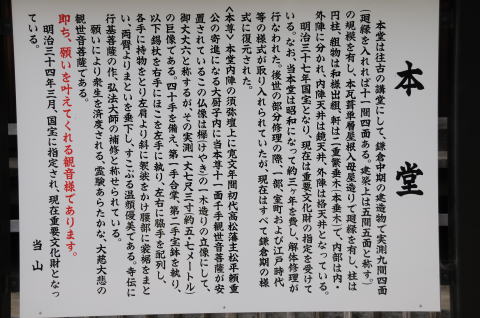 本堂
本堂は往古の講堂にして、鎌倉中期の建造物で実測九間四面
(廻縁を入れれば十一間四面ある。建築上は五間五面と称す。)
の規模を有し、本瓦葺単層屋根入母屋造りて廻縁を有し、柱は
円柱、組物は和様出組、軒は二重繁垂木(本垂木)で、内部は内・
外陣に分かれ、内陣天井は鏡天井、外陣は格天井となっている。
明治三十七年国宝となり、現在は重要文化財の指定を受けて
いる。なお、当本堂は昭和になって約三ヶ年を費し、解体修理が
行なわれた。後世の部分修理の際、一部、室町および江戸時代
等の様式が取り入れられていたが、現在はすべて鎌倉期の様
式に復元された。
〈本尊〉本堂内陣の須弥壇上に寛文年間初代高松藩主松平頼重
公の寄進になる大厨子内に当本尊十一面千手観世音菩薩が安
置されているこの仏像は欅(けやき)の一木造り)の立像にして、
御丈大六と称するが、その実測一丈七尺三寸(約五・七メートル)
の巨像である。四十手を備え、第一手合掌、第二手宝鉢を執り、
以下錫杖を右手にほこを左手に執り、左右に脇手を配列し、
各手に持物をとり左肩より斜に袈裟をかけ腰部に裳裾をまと
い、両臂よりまといを垂下し、すこぶる温顔優美である。寺伝に
行基菩薩の作、弘法大師の補修と称せられている。
願いにより衆生を済度される、霊験あらたかな、大慈大悲の
観世音菩薩である。
即ち、願いを叶えてくれる観音様であります。
明治三十四年三月、国宝に指定され、現在重要文化財となっ
ている。
当山